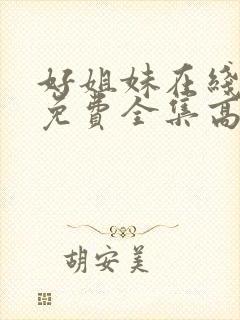 好姐妹在线
免费全集高
胡安美